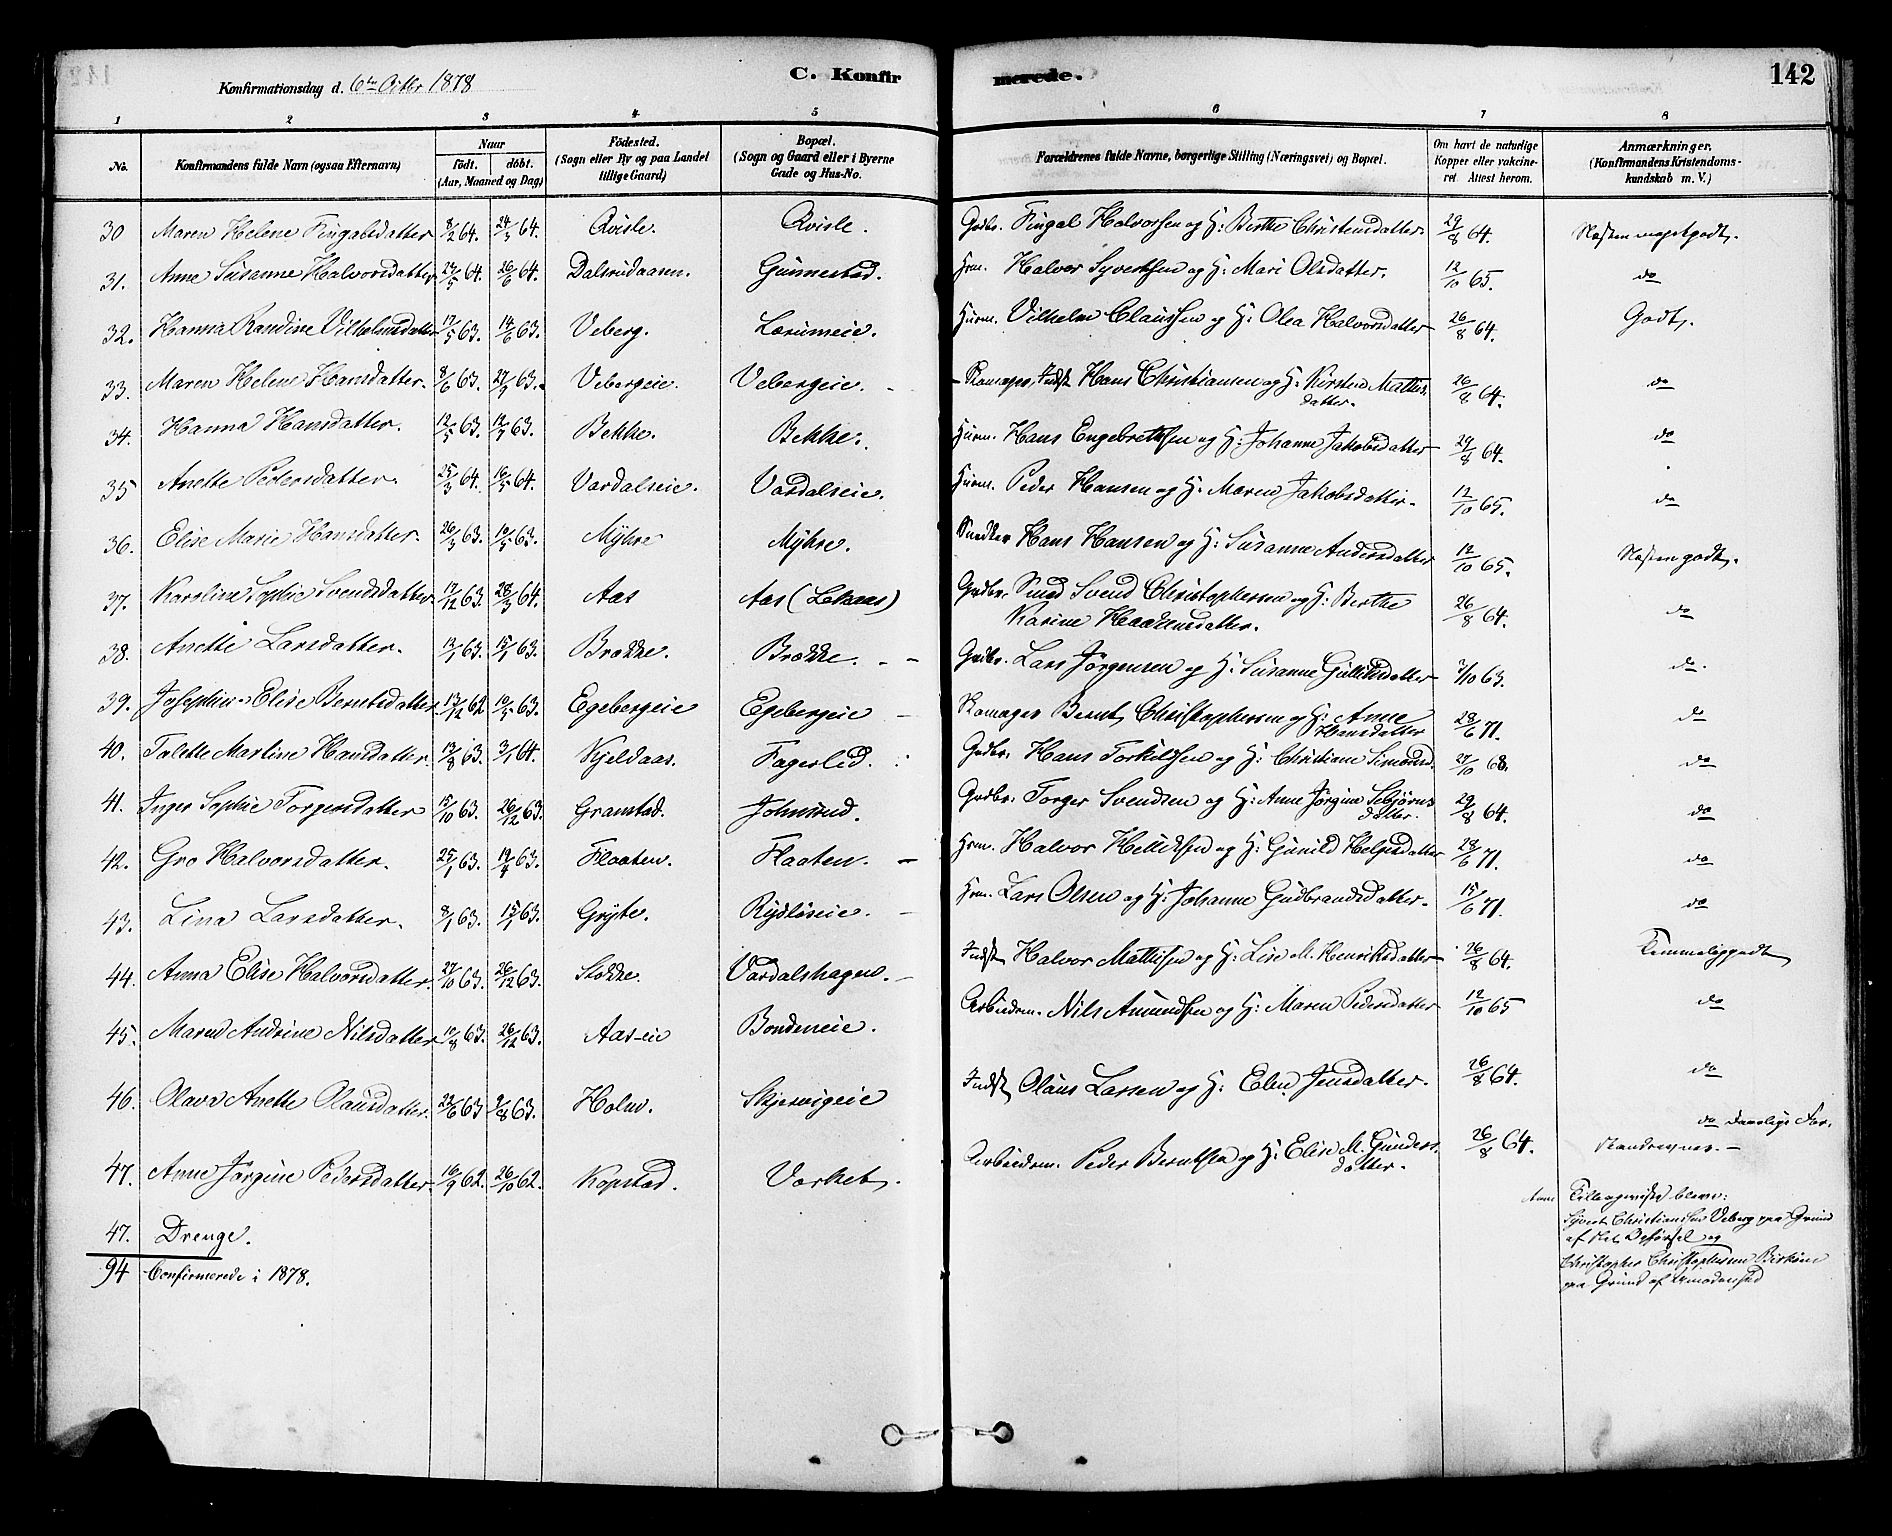 142
Konfirmationsdag d. 6te Octbr 1878
C. Konfirmerede.
1 2 3 4 5 6 7 8
No. Konfirmandens fulde Navn (ogsaa Efternavn) Naar födt. döbt. (Aar, Maaned og Dag) Födested. (Sogn eller By og paa Landet tillige Gaard) Bopæl. (Sogn og Gaard eller i Byerne Gade og Hus-No. Forældrenes fulde Navne, borgerlige Stilling (Næringsvei) og Bopæl. Om havt de naturlige Kopper eller vakcineret Attest herom. Anmærkninger. (Konfirmandens Kristendomskundskab m. V.)
30 Maren Helene Fingalsdatter 8/2 64. 24/3 64. Qvisle. Qvisle. Gdbr. Fingal Halvorsen og H: Berthe Christensdatter. 29/8 64. Næsten megetgodt.
31. Anne Susanne Halvorsdatter 24/5 64. 26/6 64. Dalsrudaasen. Gunnestad. Hrm. Halvor Syvertsen og H: Mari Olsdatter. 12/10 65. do
32. Hanna Randine Vilhelmsdatter 17/5 63. 14/6 63. Veberg. Lærumeie. Hurm. Vilhelm Claussen og H: Olea Halvorsdatter 26/8 64. Godt.
33. Maren Helene Hansdatter. 8/6 63. 27/9 63. Vebergeie. Vebergeie. Skomager, Indst Hans Christiansen og H: Kirsten Mathisdatter. 26/8 64. do
34. Hanna Hansdatter. 12/5 63. 12/7 63. Bekke. Bekke. Hurm. Hans Engebretsen og H: Johanne Jakobsdatter 29/8 64. do
35 Anette Pedersdatter. 25/3 64. 16/5 64. Vardalseie. Vardalseie. Hurm. Peder Hansen og H: Maren Jakobsdatter. 12/10 65. do
36. Elise Marie Hansdatter. 26/3 63. 10/5 63. Myhre Myhre. Snedker Hans Hansen og H: Susanne Andersdatter 12/10 65. Næsten godt.
37. Karoline Sophie Svendsdatter 17/12 63. 28/3 64. Aas Aas (Lekaas) Gdbr. Smed Svend Christophersen og H: Berthe Karine Haakensdatter. 26/8 64. do
38. Anette Larsdatter. 13/1 63. 15/1 63. Brække. Brække. Gdbr. Lars Jörgensen og H: Susanne Gulliksdatter 7/10 63. do.
39. Josephine Elise Berntsdatter 13/12 62 10/5 63. Egebergeie Egebergeie Skomager Bernt Christophersen og H: Anne Hansdatter 28/6 71. do
40. Tolette Martine Hansdatter. 13/8 63. 3/1 64. Kjeldaas. Fagerlid. Gdbr. Hans Torkildsen og H: Christiane Simonsd. 27/10 68. do
41. Inger Sophie Torgersdatter 15/10 63. 26/12 63. Granstad. Johnsrud. Gdbr. Torger Svendsen og H: Anne Jörgine Sebjörnsdatter. 29/8 64. do
42. Gro Halvorsdatter. 25/1 63. 19/4 63. Flaaten. Flaaten. Hrm. Halvor Helliksen og H: Gunild Helgesdatter 28/6 71. do
43. Lina Larsdatter. 8/1 63. 15/1 63. Gryte. Rydsöseie. Hrm. Lars Olsen og H: Johanne Gudbrandsdatter. 15/6 71. do
44. Anna Elise Halvorsdatter. 27/10 63. 26/12 63. Stokke. Vardalshagen. Indst Halvor Mathisen og H: Lise M. Henriksdatter 26/8 64. Temmelig godt
45. Maren Andrine Nilsdatter 10/8 63. 26/12 63. Aas-eie Bondeneie. Arbeidsm. Nils Amundsen og H: Maren Pedersdatter 12/10 65 do
46. Olava Anette Olausdatter. 22/6 63 2/8 63. Holm. Skjervigeie Indst Olaus Larsen og H: Elen Jensdatter. 26/8 64. do
47. Anne Jörgine Pedersdatter. 16/9 62. 26/10 62. Kopstad. Værket. Arbeidsm. Peder Berntsen og H: Elise M. Gundersdatter. 26/8 64. do Daarlige Forstandsevner.
47. Drenge.
94 Confirmerede i 1878.
Anm Tilbageviste bleve:
Syvert Christiansen Veberg paa Grund
af slet Opförsel og
Christopher Christophersen
paa Grund af Umodenhed